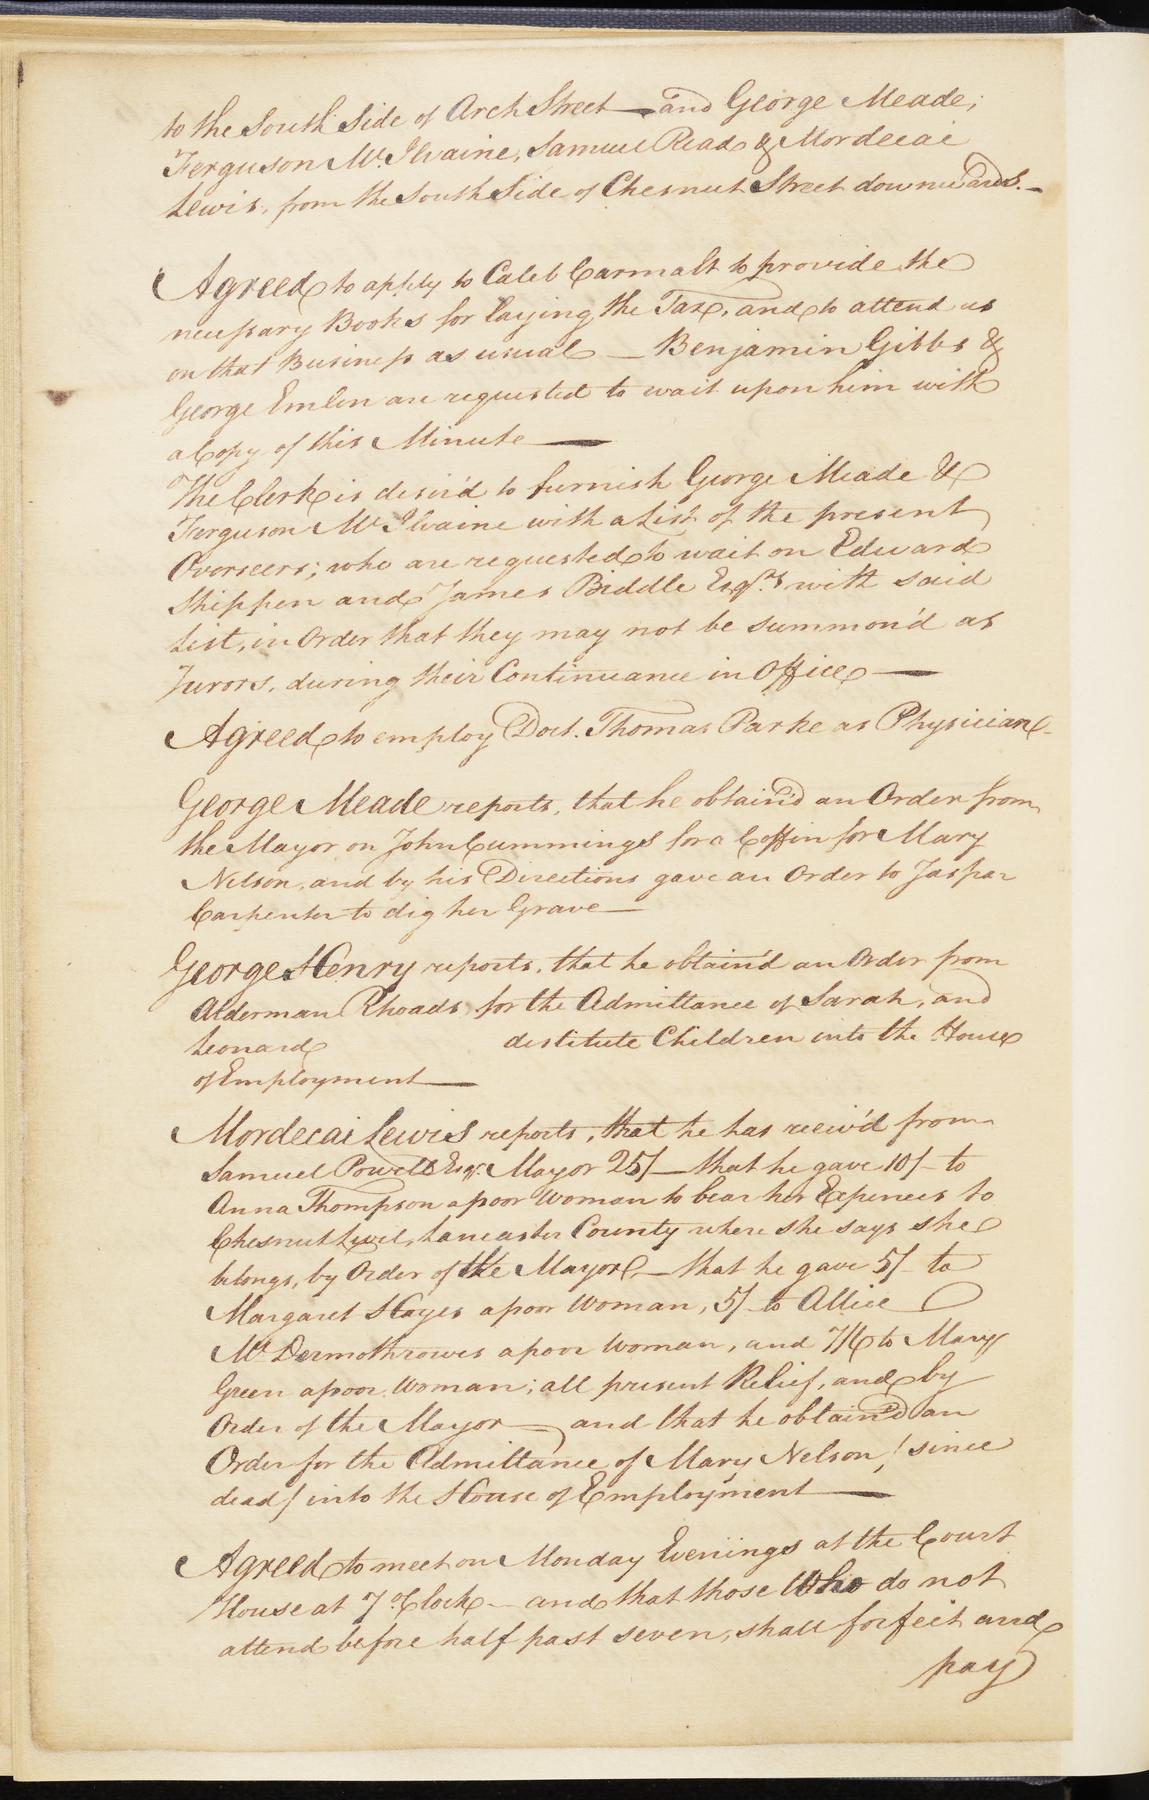 to the South Side of Arch Street — and George Meade;
Ferguson Mc.Ilvaine, Samuel Read & Mordecai
Lewis, from the South Side of Chesnut Street downwards. —
Agreed to apply to Caleb Carmalt to provide the
necessary Books for laying the Tax, and to attend us
on that Business as usual — Benjamin Gibbs &
George Emlen are requested to wait upon him with
a Copy of this Minute —
The Clerk is desir'd to furnish George Meade &
Ferguson Mc.Ilvaine with a List of the present
Overseers; who are requested to wait on Edward
Shippen and James Biddle Esqrs. with said
List, in Order that they may not be summon'd as
Jurors, during their Continuance in Office —
Agreed to employ Doct. Thomas Parke as Physician
George Meade reports, that he obtain'd an Order from
the Mayor on John Cummings for a Coffin for Mary
Nelson, and by his Directions gave an Order to Jaspar
Carpenter to dig her Grave —
George Henry reports, that he obtain'd an Order from
Alderman Rhoads for the Admittance of Sarah, and
Leonard destitute Children into the House
of Employment —
Mordecai Lewis reports, that he has receiv'd from
Samuel Powell Esqr. Mayor 25/ — that he gave 10/- to
Anna Thompson a poor Woman to bear her Expences to
Chesnut Levil, Lancaster County where she says she
belongs, by Order of the Mayor — that he gave 5/- to
Margaret Hayes a poor Woman, 5/- to Allice
Mc.Dermothrowes a poor Woman, and 7/6 to Mary
Green a poor Woman; all present Relief, and by
Order of the Mayor — and that he obtain'd an
Order for the Admittance of Mary Nelson, / since
dead / into the House of Employment —
Agreed to meet on Monday Evenings at the Court
House at 7 o'Clock — and that those Who do not
attend before half past seven, shall forfeit and
pay